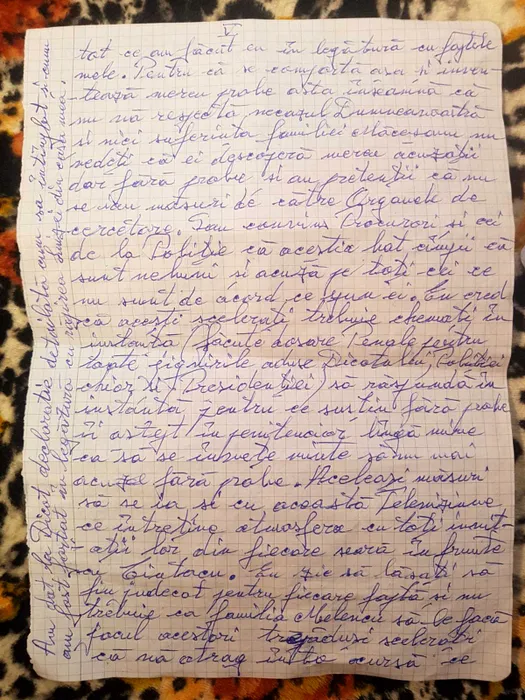 V
tot ce am făcut eu în legătură cu faptele
mele. Pentru că se comportă așa și inven-
tează mereu probe asta înseamnă că
nu vă respectă necazul Dumneavoastră
și nici suferința familiei Măceșanu nu
vedeți că ei descoperă mereu acuzații
dar fără probe și au pretenții că nu
se iau măsuri de către Organele de
cercetare. Sau convins Procurori și cei
de la Poliție că aceștia bat cîmpii că
sunt nebuni și acuză pe toți cei ce
nu sunt de acord ce spun ei. Eu cred
că acești scelerați trebuie chemați în
instanță (făcute dosare Penale pentru
toate jignirile aduse Dicotului, Poliției
chior și Președenției) să răspundă în
instanță pentru ce susțin fără probe
îi aștept în penitenciar lîngă mine
ca să se învețe minte să nu mai
acuze fără probe. Aceleași măsuri
să se ia și cu această Televiziune
ce întreține atmosfera cu toți invit-
ații lor din fiecare seară în frunte
cu Ciutacu. Eu zic să lăsați să
fiu judecat pentru fiecare faptă și nu
trebuie ca familia Melencu să le facă
jocul acestori trepăduși scelerați
ca vă atrag într-o cursă ce
Am dat la Dicot declarație detailată cum sa întîmplat și cum
am fost șantajat în legătură cu ieșirea Luizei din curtea mea.